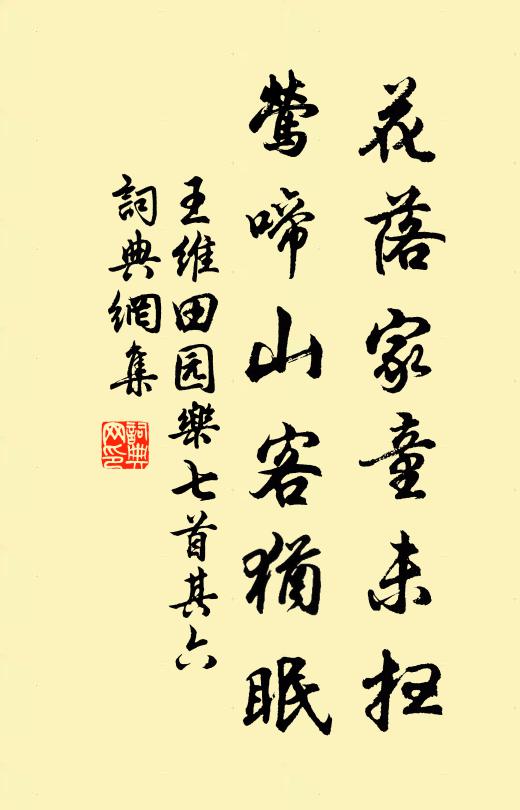 花落家童未扫
莺啼山客犹眠
王维田园樂七首其六
詞典網集
詞典网印